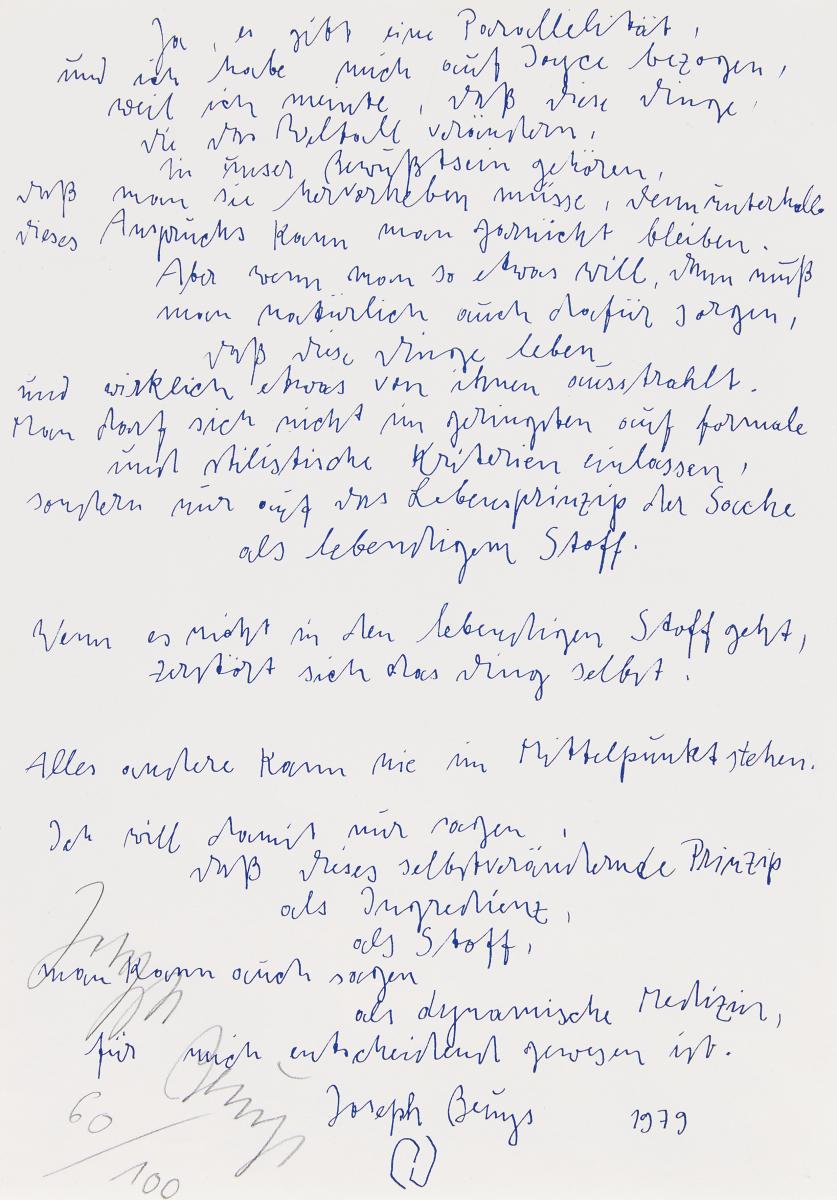 Ja, es gibt eine Parallelität,
und ich habe mich auf Joyce bezogen,
weil ich meinte, daß diese Dinge,
die das Weltall verändern,
in unser Bewußtsein gehören,
daß man sie hervorheben müsse, denn unterhalb
dieses Anspruchs kann man garnicht bleiben.
Aber wenn man so etwas will, dann muß
man natürlich auch dafür sorgen,
daß diese Dinge leben
und wirklich etwas von ihnen ausstrahlt.
Man darf sich nicht im geringsten auf formale
und stilistische Kriterien einlassen,
sondern nur auf das Lebensprinzip der Sache
als lebendigem Stoff.
Wenn es nicht in den lebendigen Stoff geht,
zerstört sich das Ding selbst.
Alles andere kann nie im Mittelpunkt stehen.
Ich will damit nur sagen,
daß dieses selbstverändernde Prinzip
als Ingredienz,
als Stoff,
man kann auch sagen
als dynamische Medizin,
für mich entscheidend gewesen ist.
Joseph Beuys 1979
Joseph Beuys
60/100